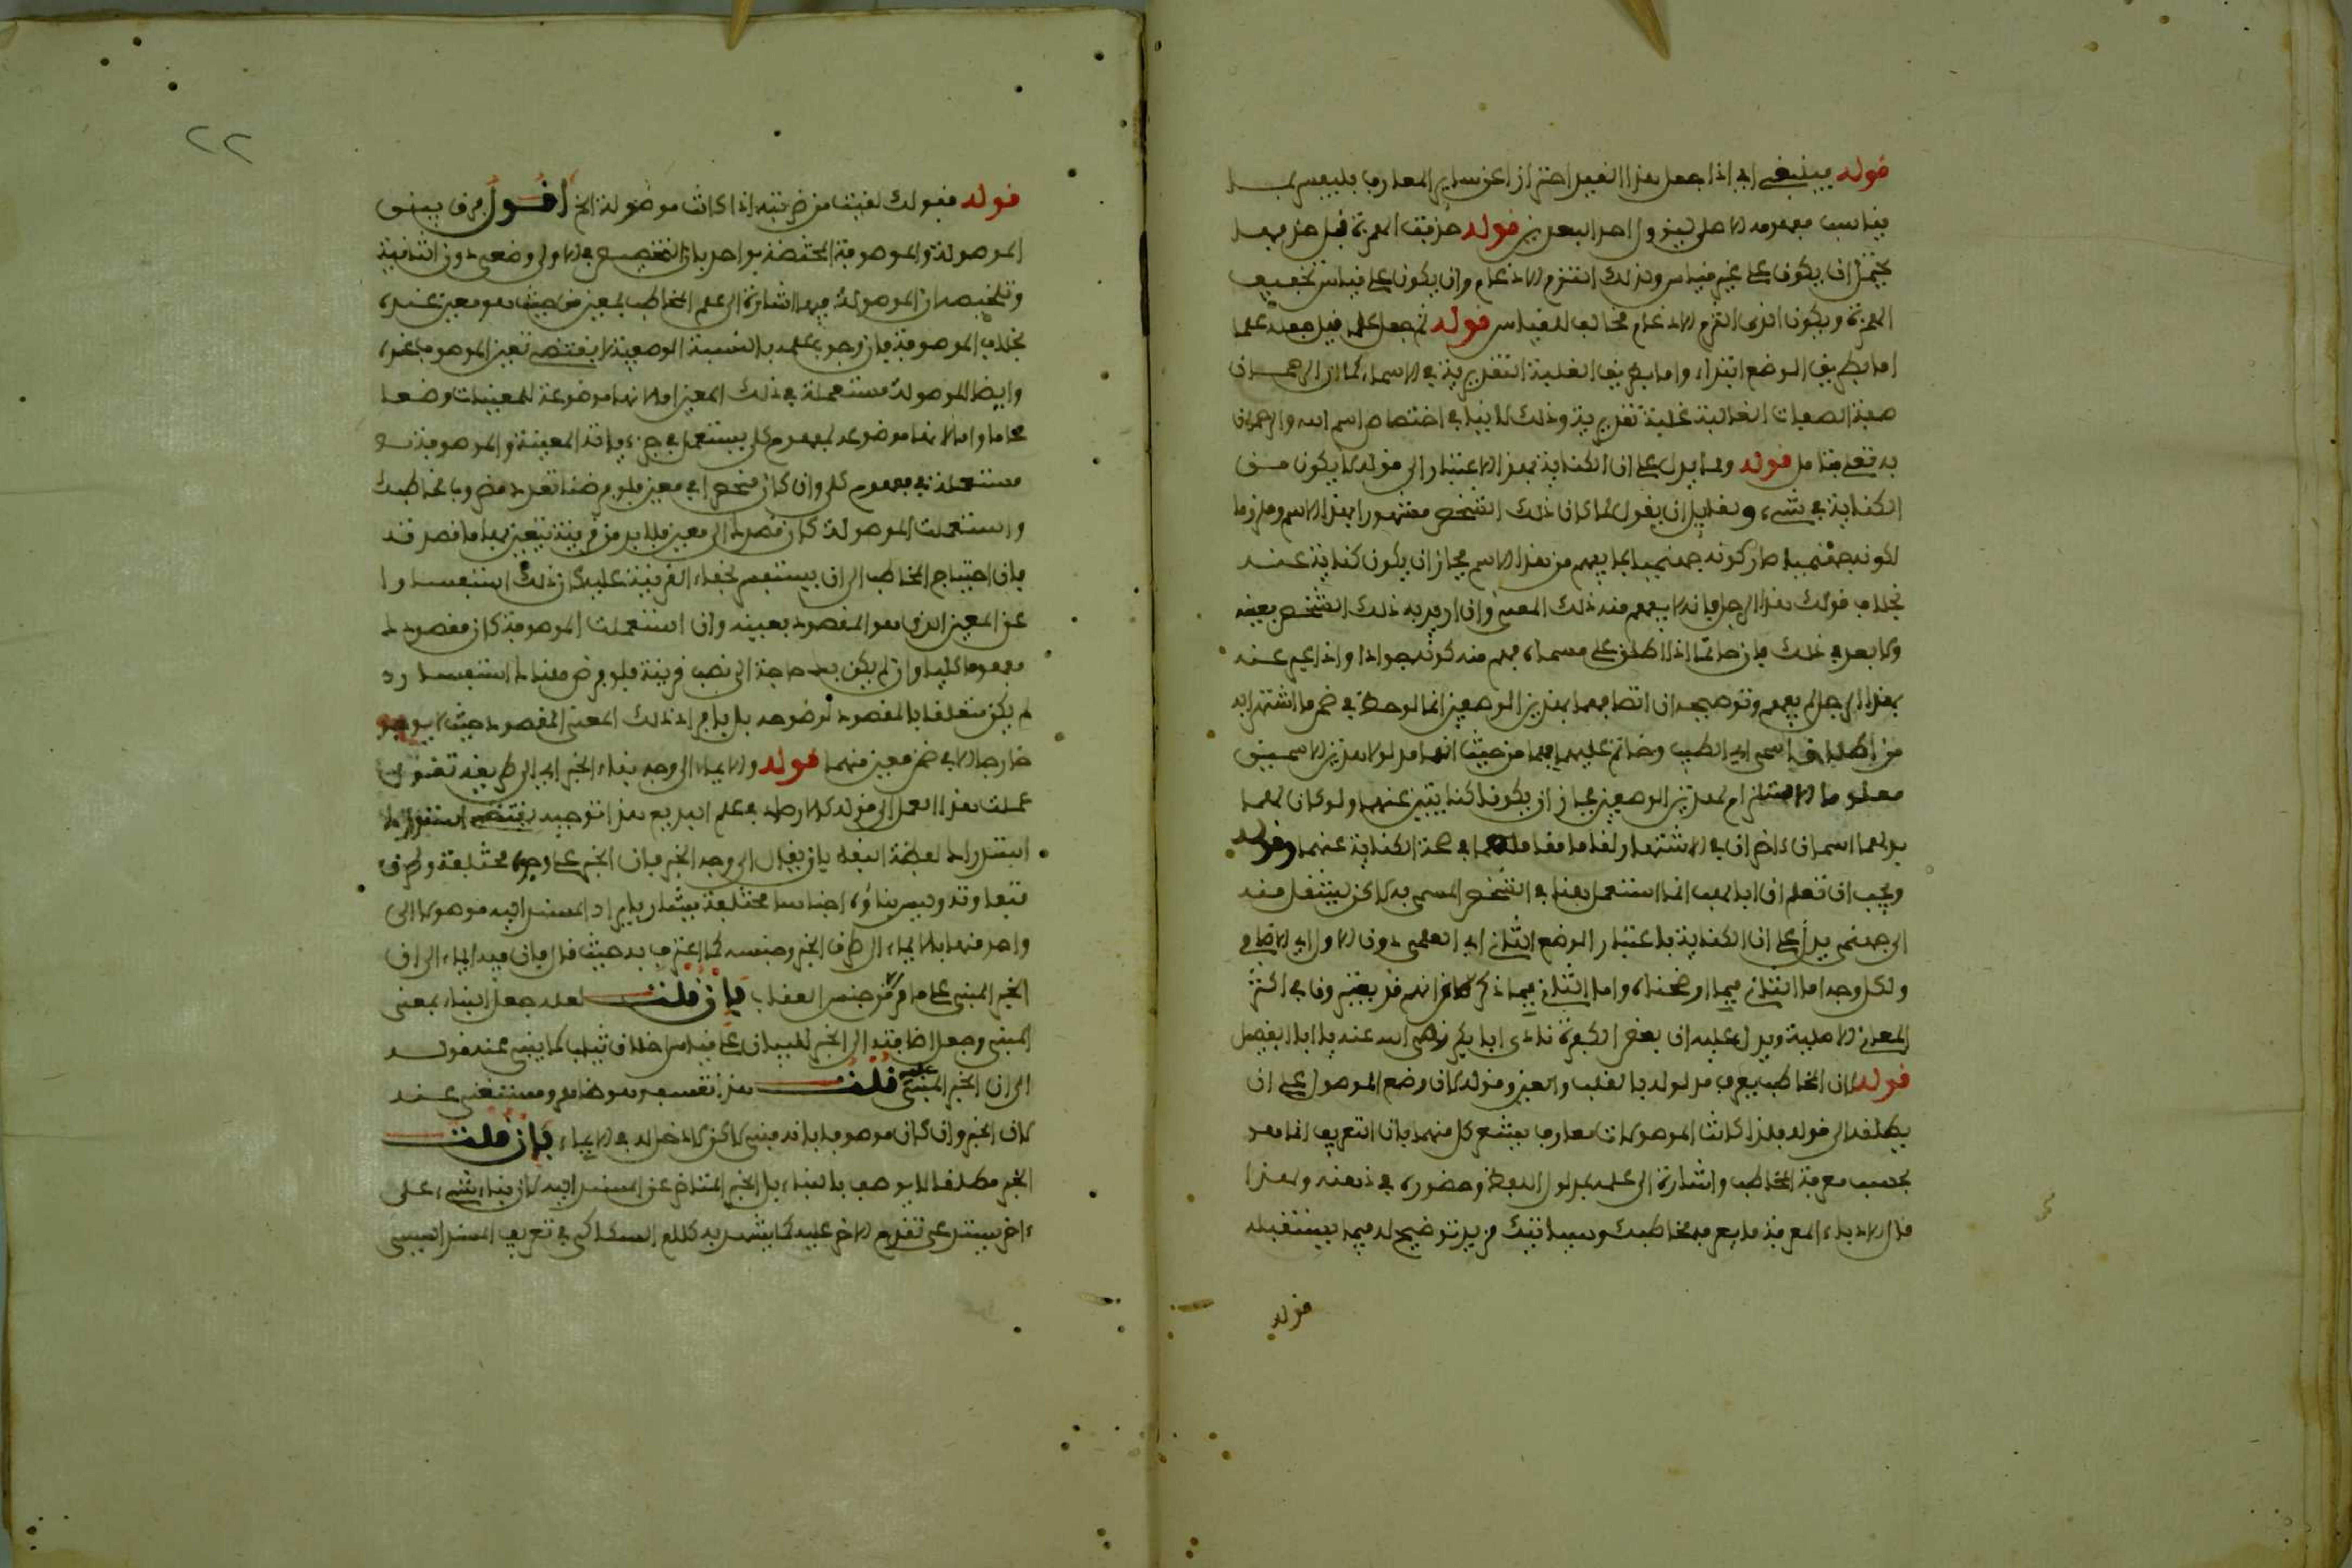 قوله فينبغي اي اذا جعل هذا القيد احترازا عن ساير المعارف فليفسر بمـا
يناسب مفهومه الاصلي ليزول احد البعدين قوله حذفت الهمزة قيل حذفهـا
يحتمل ان يكون على غير قياس ولذلك التزم الادغام وان يكون على قياس تخفيف
الهمزة ويكون التزام الادغام مخالف للقياس قوله ثم جعل علما قيل جعله علما
اما بطريق الوضع ابتداء واما بطريق الغلبة التقديرية في الاسماء كما ان الرحمـان
من الصفات الغالبة غلبة تقديرية وذلك لا ينافي اختصاص اسم الله والرحمان
به تعلى فتامل قوله ومما يدل على ان الكناية بهذا الاعتبار الى قوله لا يكون مـن
الكناية في شيء ولقايل ان يقول لما كان ذلك الشخص مشهورا بهذا الاسم وملزوما
لكونه جهنميا صار كونه جهنميا مما يفهم من هذا الاسم فجاز ان يكون كناية عنـه
بخلاف قولك هذا الرجل فانه لا يفهم منه ذلك المعنى وان اريد به ذلك الشخص بعينه
ولا بعد في ذلك فان حاتما اذا اطلق على مسماه فهم منه كونه جوادا واذا عبر عنـه
بهذا الرجل لم يفهم وتوضيحه ان اتصافهما بهذين الوصفين انما لوحظ في ضمن ما اشتهرا به
من اطلاق اسمي ابي لهب وحاتم عليهما فهما من حيث انهما مدلولا هذين الاسمـين
معلوما الاستلزام لهذين الوصفين فجاز ان يكونا كنايتين عنهما ولو كان لهمـا
بدلهما اسمان ءاخران في الاشتهار لقاما مقامهما في صحة الكناية عنهما وقوله
ويجب ان تعلم ان ابا لهب انما استعمل هنا في الشخص المسمى به لاكن لينتقل منـه
الى جهنمي يدل على ان الكناية باعتبار الوضع الثاني اي العلمي دون الاول اي الاضافي
ولكل وجه اما الثاني فبما اوضحناه واما الثاني فبما ذكر من انهم قد يعتبرون في الكنى
المعاني الاصلية ويدل عليه ان بعض الكفرة نادى ابا بكر رضي الله عنه بابا الفصيل
قوله لان المخاطب يعرف مدلوله بالقلب والعين وقوله لان وضع الموصول على ان
يطلقه الى قوله فلذا كانت الموصولات معارف يشعر كل منهما بان التعريف انما هو
بحسب معرفة المخاطب واشارة الى علمه بمدلول اللفظ وحضوره في ذهنه ولهذا
قال الادباء المعرفة ما يعرفه مخاطبك وسياتيك مزيد توضيح له فيما يستقبله
قوله
٢٢
قوله فقولك لقيت من ضربته اذا كانت موصولة الخ اقـول فرق بيـن
الموصولة والموصوفة المختصة بواحد بان التخصيص في الاولى وضعي دون الثانية
وتلخيصه ان الموصولة فيها اشارة الى علم المخاطب بمعين من حيث هو معين عنده
بخلاف الموصوفة فان وجوب علمه بالنسبة الوصفية لا يقتضي تعين الموصوف عنده
وايضا الموصولة مستعملة في ذلك المعين اما لانها موضوعة للمعينات وضعـا
عاما واما لانها موضوعة لمفهوم كلي يستعمل في جزءياته المعينة والموصوفـة
مستعملة في مفهوم كلي وان كان منحصرا في معين فلو فرضنا تعدد مضروب مخاطبك
واستعملت الموصولة كان قصدا الى معين فلا بد من قرينة يتعين بها ما قصدتـه
فان احتياج المخاطب الى ان يستفسر لخفاء القرينة عليه كان ذلك استفسـارا
عن المعين الذي هو المقصود بعينه وان استعملت الموصوفة كان مقصودا
مفهوما كليا وان لم يكن به حاجة الى نصب قرينة فلو فرض هناك استفسـاره
لم يكن متعلقا بالمقصود لوضوحه بل بافراد ذلك المعنى المقصود حيث لا يوجد
خارجا الا في ضمن معين منهما قوله والايماء الى وجه بناء الخبر اي الى طريقه تقول
عملت هذا العمل الى قوله كالارصاد في علم البديع هذا توجيه يقتضي استدراك
استدراك لفظة البناء بان يقال الى وجه الخبر فان الخبر على وجوه مختلفة وطرق
متفاوتة وليس بناؤه اجناسا مختلفة يشار بايراد المسند اليه موصولا الى
واحد منها بالايماء الى طرق الخبر وجنسه كما اعترف به حيث قال فان فيه ايماء الى ان
الخبر المبني على ما ذكر من جنس العقاب فان قلـت لعله جعل البناء بمعنى
المبني وجعل اضافته الى الخبر للبيان على قياس اخلاق ثياب كما ينبي عنه قولـه
الى ان الخبر المبني عليه قلـت هذا تعسف هو ظاهر ومستغنى عنـه
لان الخبر وان كان موصوفا بانه مبني لاكن لا دخل له في الايماء فان قلـت
الخبر مطلقا لا يوصف بالبناء بل الخبر المتاخر عن المسند اليه لان بناء شيء على
ءاخر يستدعي تقدم الاخر عليه كما يشهد به كلام السكاكي في تعريف المسند السببي